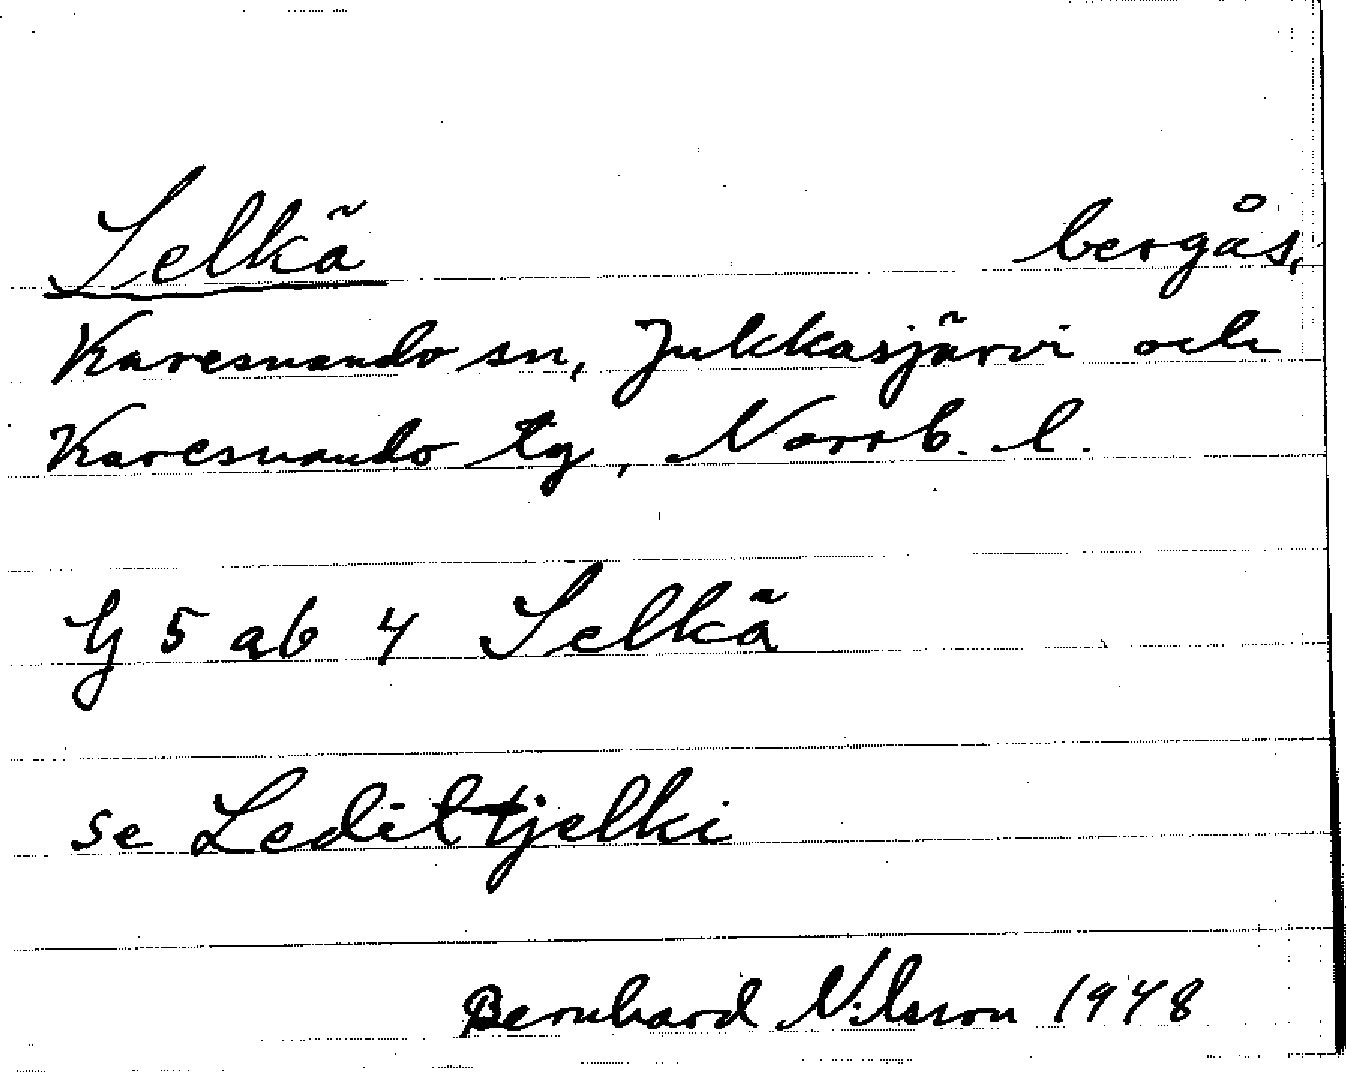 Selkä bergås,
Karesuando sn, Jukkasjärvi och
Karesuando tg, Norrb. l.
G 5 ab 4 Selkä
se Ledittjelki
Bernhard Nilsson 1948